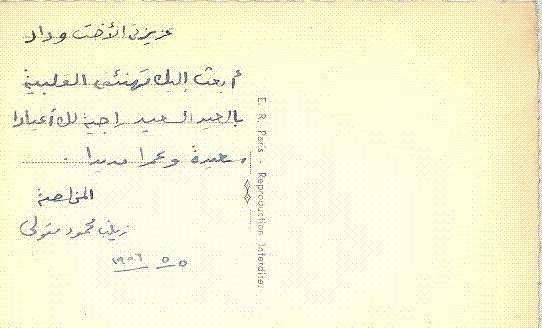 عزيزتى الأخت وداد
أبعث إليك تهنئتى القلبية
بالعيد السعيد راجية لك أعيادا
سعيدة وعمرا مديدا .
المخلصة
زينب محمود متولى
١٩٥٦ ٥ ٥
E. R. Paris - Reproduction Interdite.